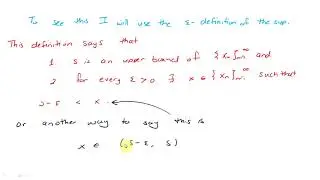 To see this I will use the ε-definition of the sup.
This definition says that
1. s is an upper bound of {xₙ}ₙ₌₁^∞ and
2. for every ε > 0 ∃ x ∈ {xₙ}ₙ₌₁^∞ such that
s-ε < x
or another way to say this is
x ∈ (s-ε, s)